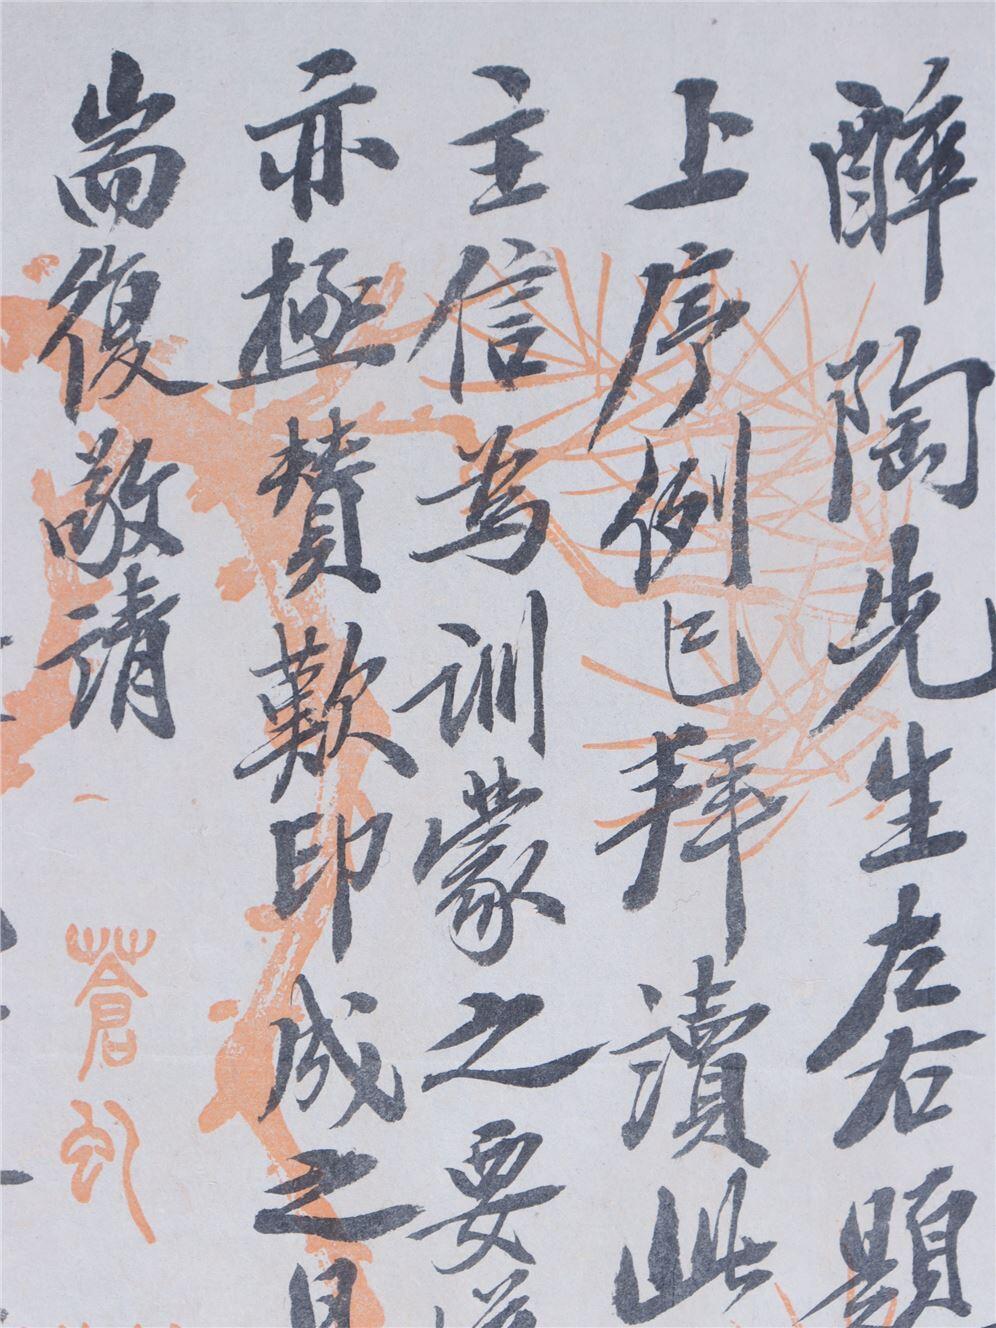 醉陶先生左右題
上序例已拜讀此
主信為訓蒙之要
亦極贊歎印成之
耑復敬請
蒼虬